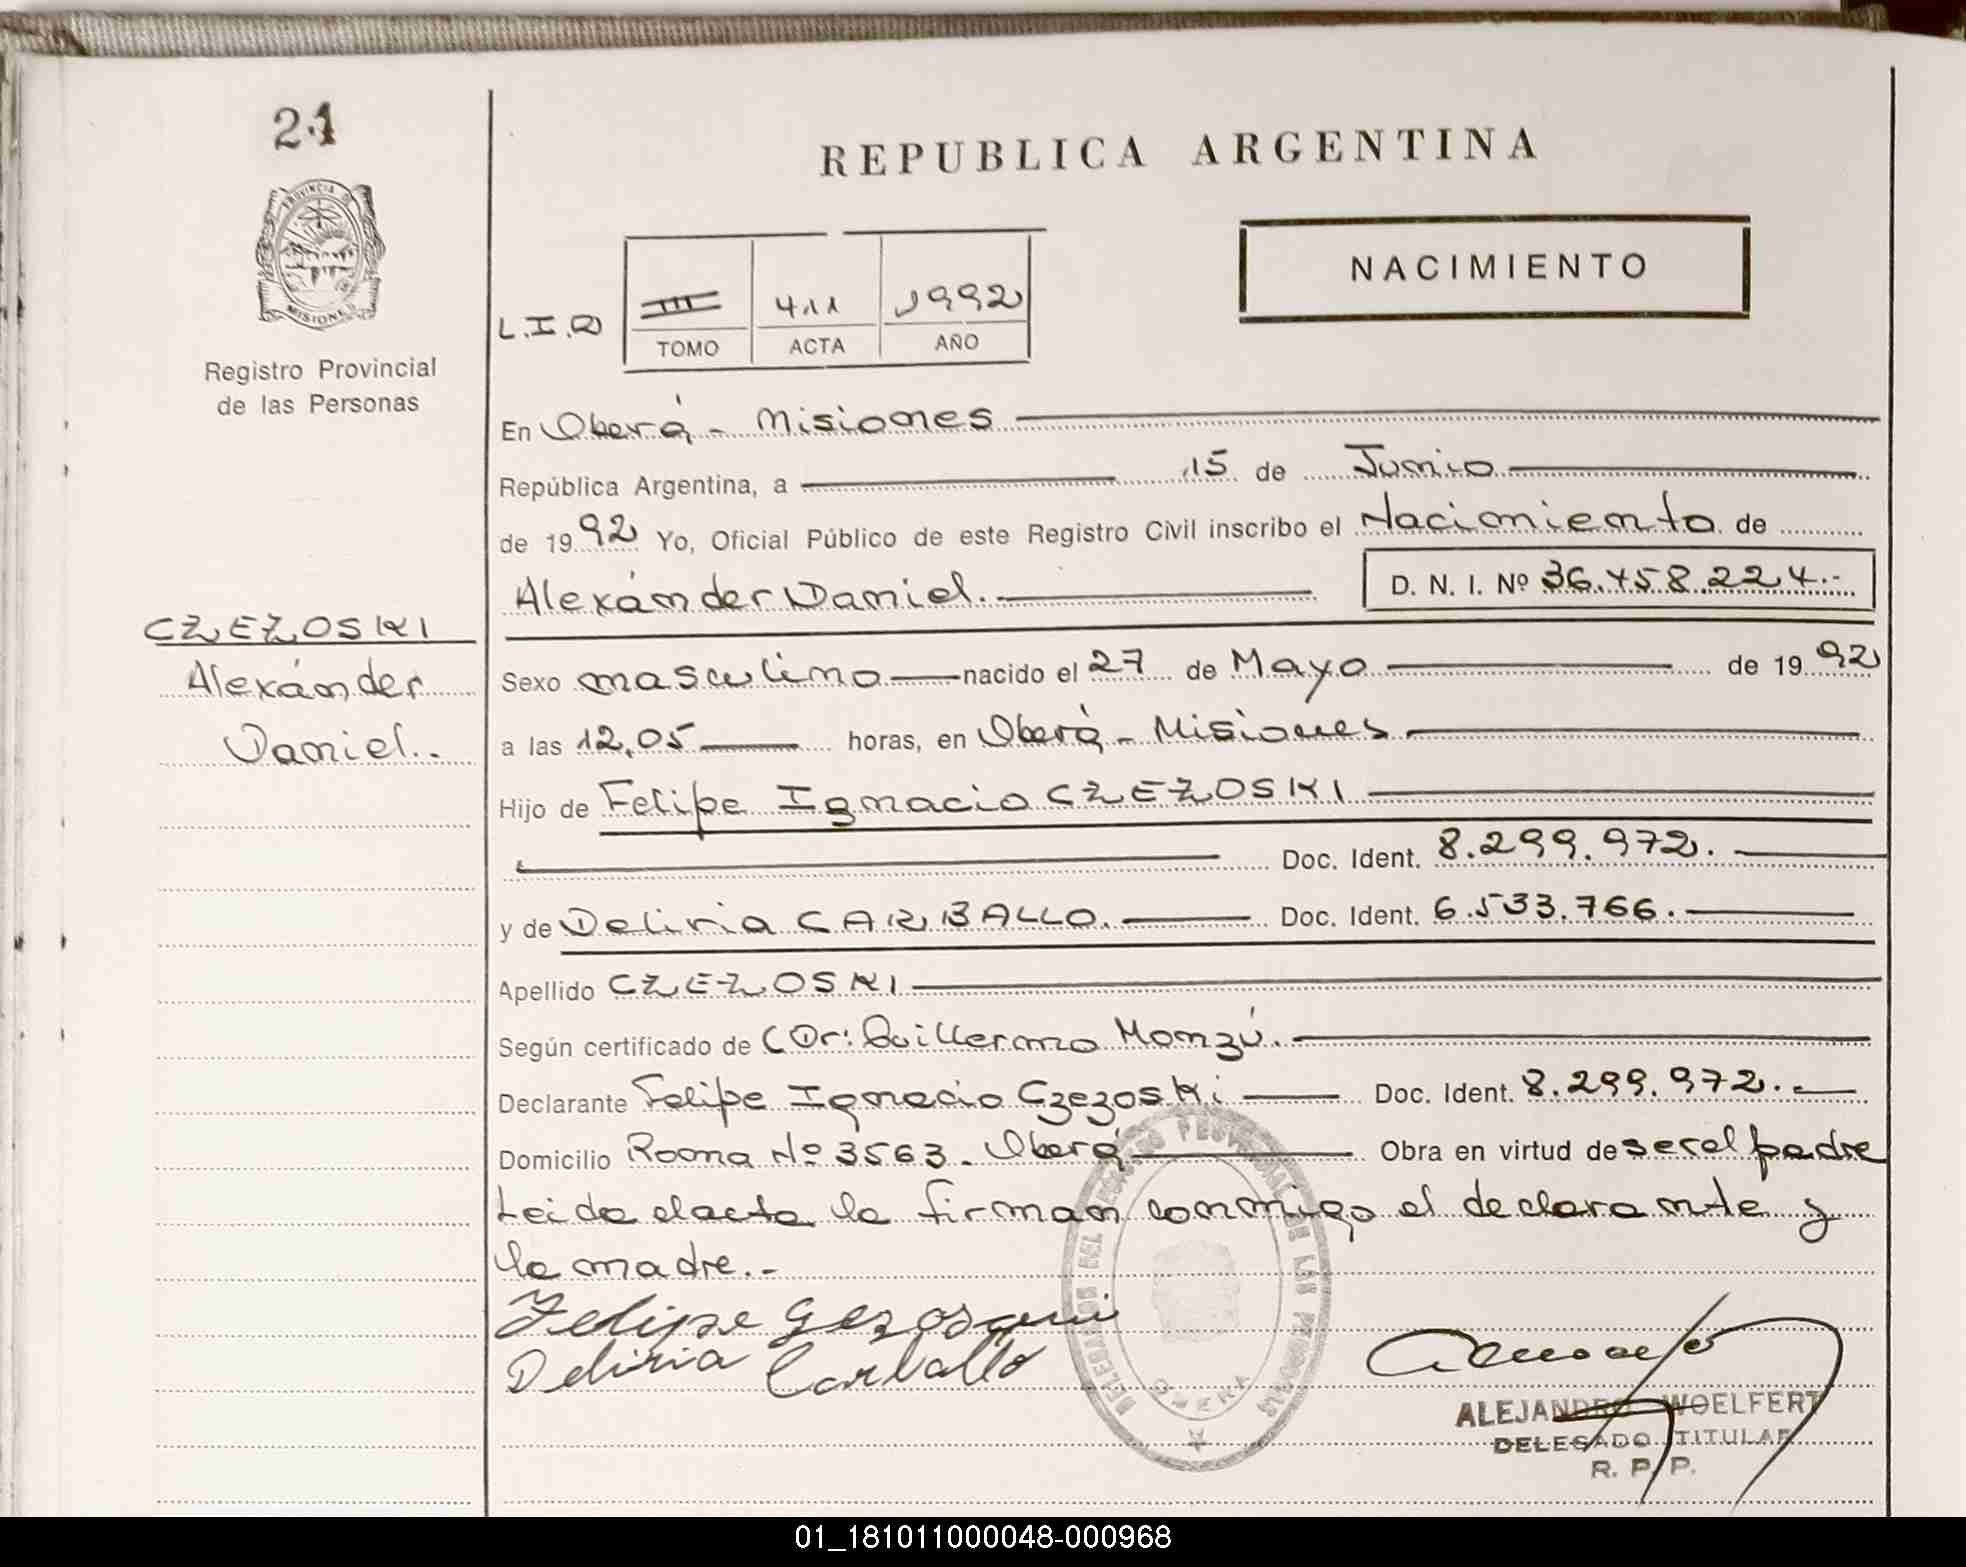 21
PROVINCIA DE
MISIONES
Registro Provincial
de las Personas
REPUBLICA ARGENTINA
NACIMIENTO
L.I.Q
III 411 1992
TOMO ACTA AÑO
En Oberá - Misiones
República Argentina, a 15 de Junio
de 1992 Yo, Oficial Público de este Registro Civil inscribo el Nacimiento de
Alexánder Daniel. D. N. I. Nº 36.458.224.-
CZEZOSKI
Alexánder
Daniel..
Sexo masculino nacido el 27 de Mayo de 1992
a las 12,05 horas, en Oberá - Misiones
Hijo de Felipe Ignacio CZEZOSKI
Doc. Ident. 8.299.972.
y de Deliria CARBALLO. Doc. Ident. 6.533.766.
Apellido CZEZOSKI
Según certificado de (Dr: Guillermo Monzú.
Declarante Felipe Ignacio Czezoski Doc. Ident. 8.299.972.-
Domicilio Roma Nº 3563. Oberá Obra en virtud de ser el padre
Leida el acta la firman conmigo el declarante y
la madre.-
Felipe
Deliria Carballo
ALEJANDRO WOELFERT
DELEGADO TITULAR
R. P. P.
01_181011000048-000968